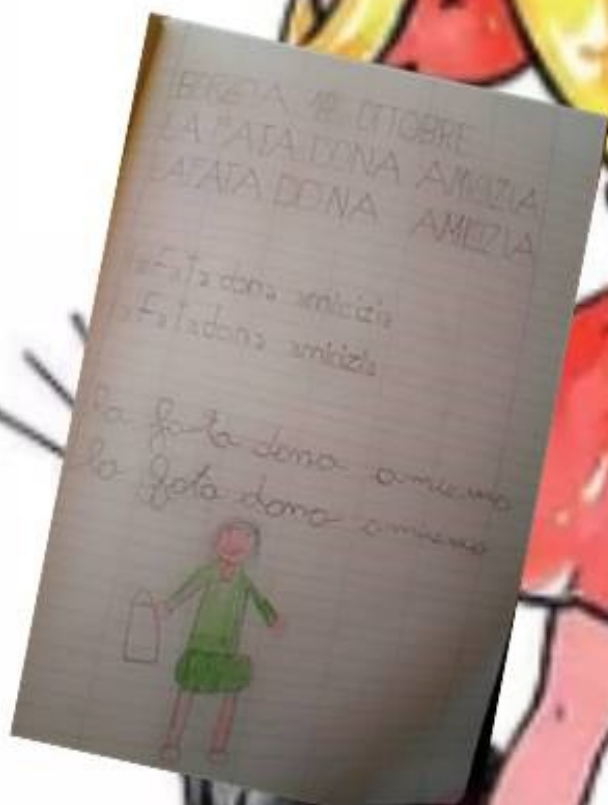 12 OTTOBRE
LA FATA DONA AMICIZIA
LA FATA DONA AMICIZIA
la fata dona amicizia
la fata dona amicizia
la fata dona
la fata dona